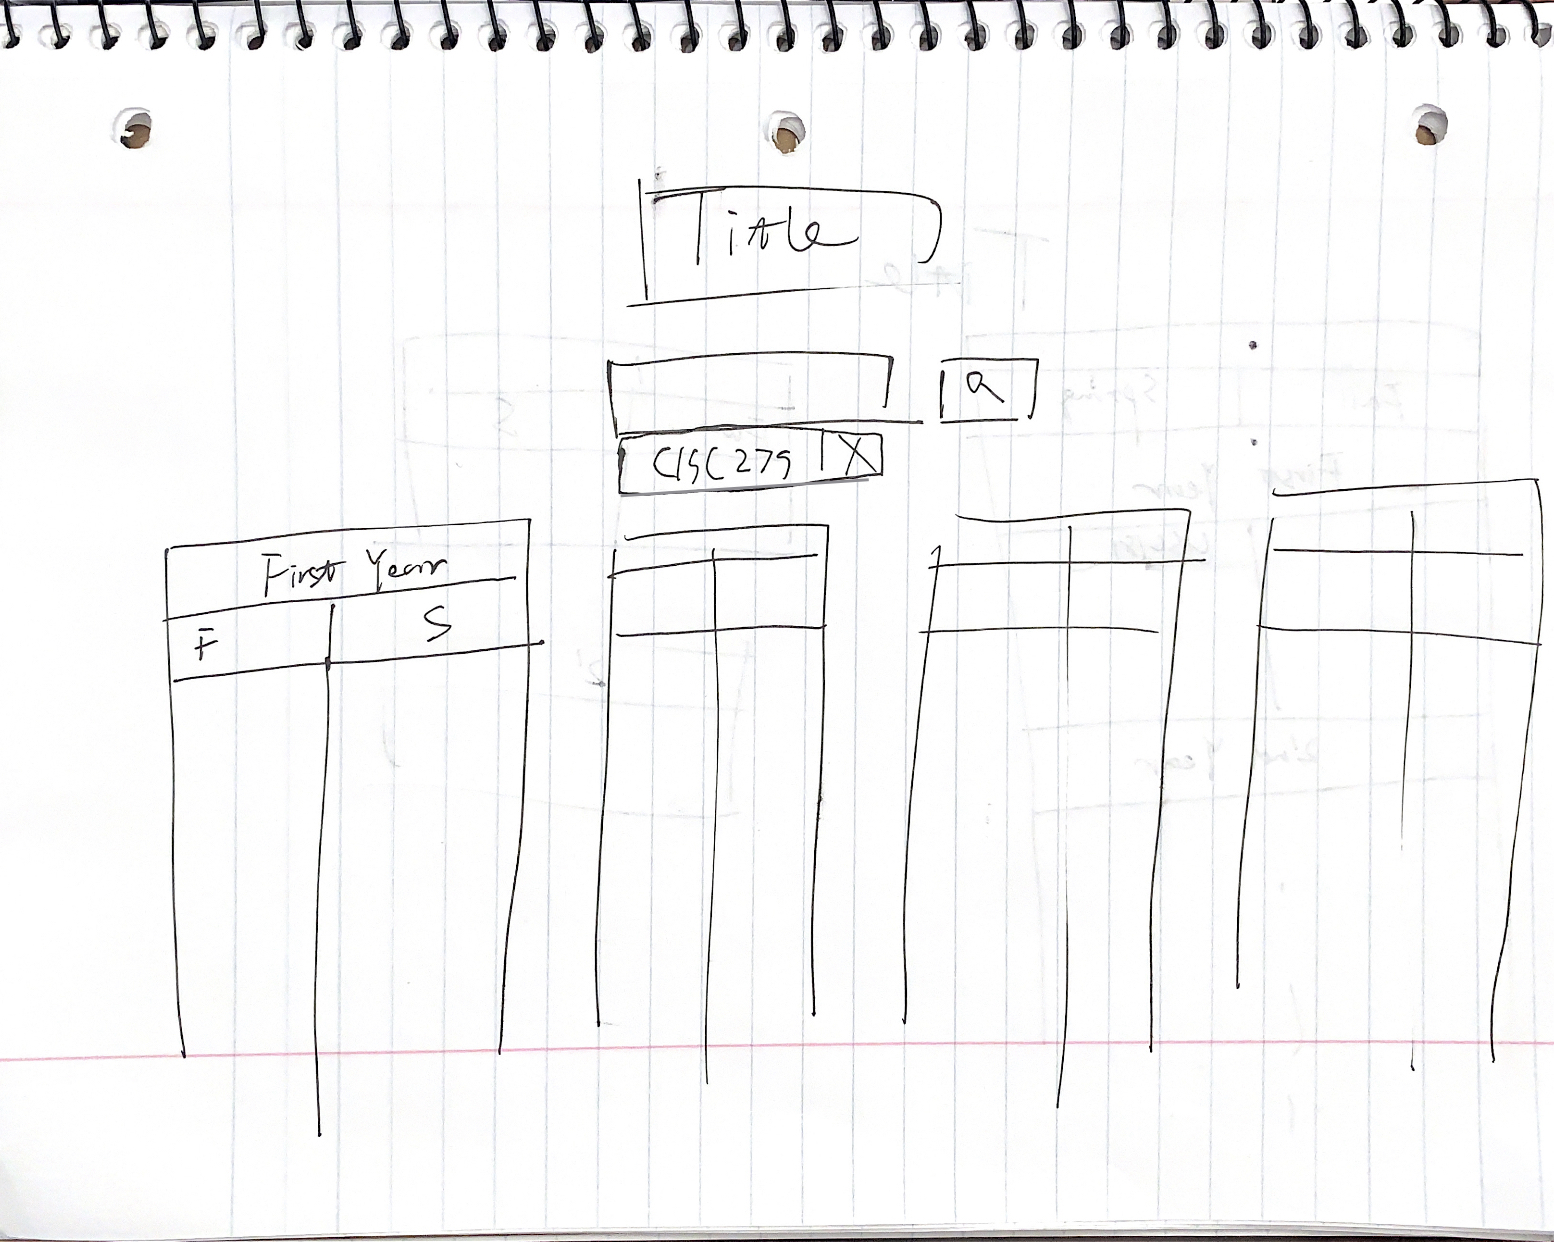 Title
CISC275 X
First Year
F S